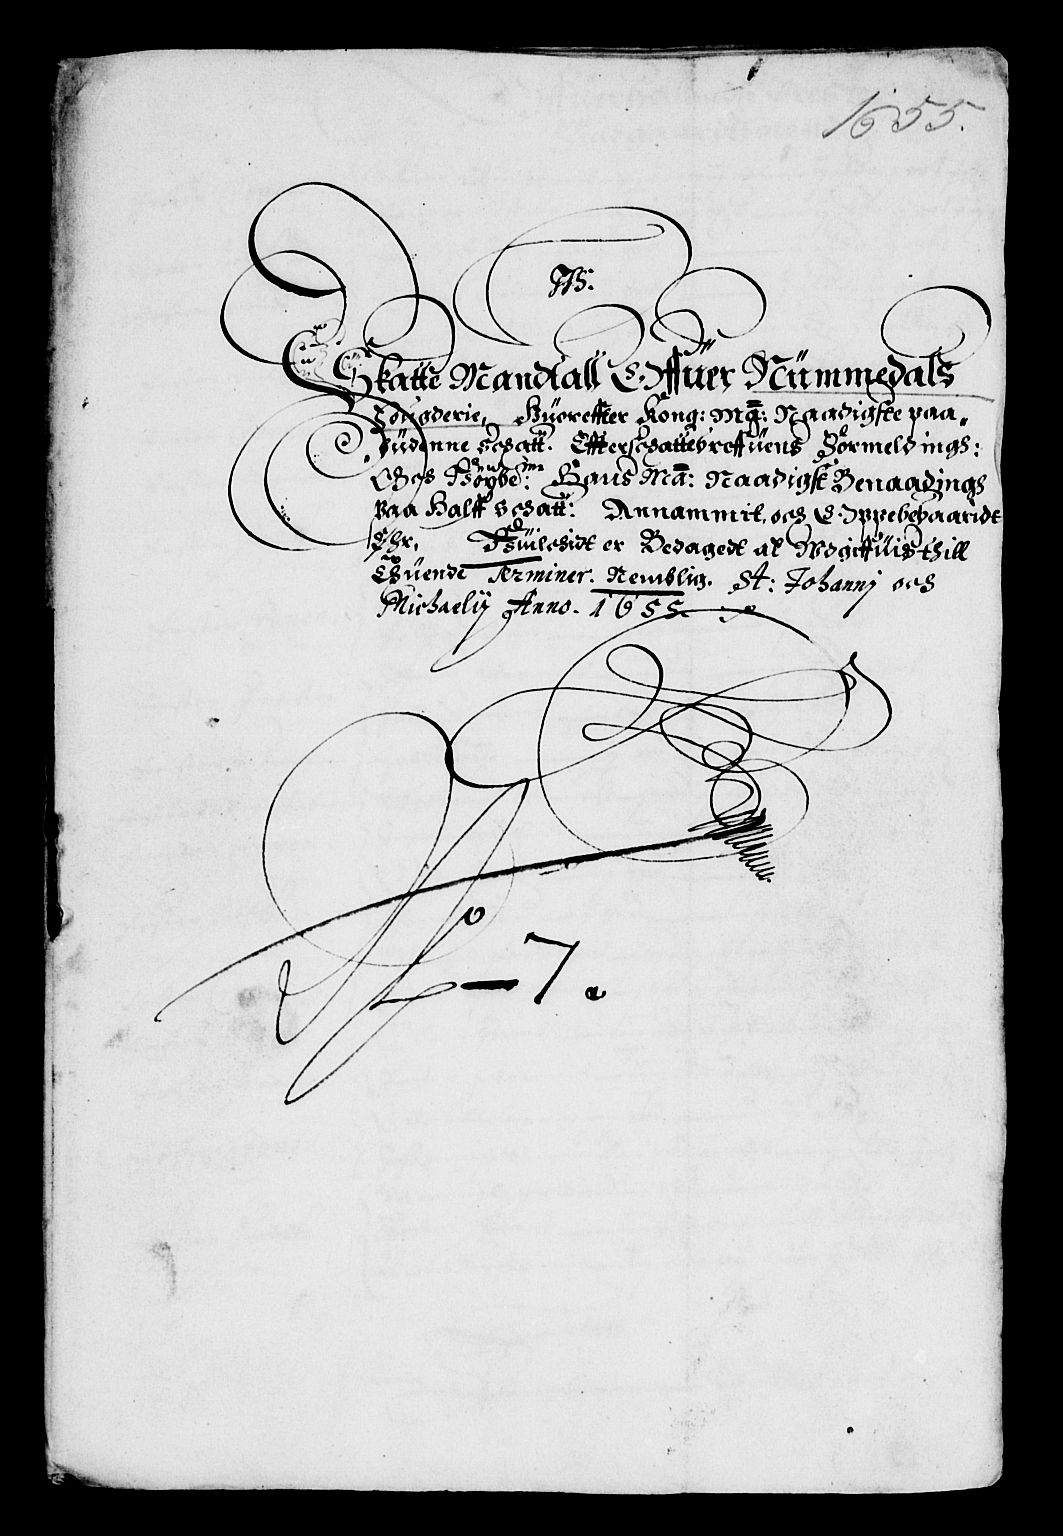 1655.
Skatte Mandtall Offuer Nümmedals
Fougderie, Huoreffter Kong: Maÿ: Naadigste paa„
büdenne schatt. Effter schattebreffüens Formeldings:
Och Hans Maÿ: Naadigst Benaadings
paa Halff schatt: Annammit, och Oppebebaaridt
Ehr, Huilchidt er Bedagedt at Udgiffuis thill
Thuende Terminer. Nemblig. St: Johannj och
Michaelij Anno. 1655
7.